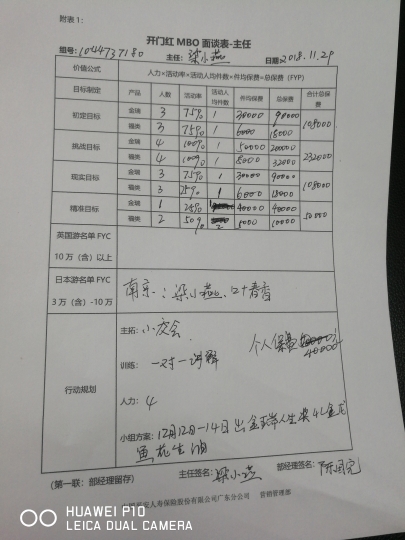 附表1:
开门红 MBO 面谈表-主任
组号: 1044737180 主任: 梁小燕 日期 2018.11.29
价值公式 人力×活动率×活动人均件数×件均保费=总保费(FYP)
目标制定 产品 人数 活动率 活动人均件数 件均保费 总保费 合计总保费
初定目标 金瑞 3 75% 1 30000 90000 108000
福类 3 75% 1 6000 18000
挑战目标 金瑞 4 100% 1 50000 200000 232000
福类 4 100% 1 8000 32000
现实目标 金瑞 3 75% 1 30000 90000 108000
福类 3 75% 1 6000 18000
精准目标 金瑞 1 25% 40000 40000 50000
福类 2 50% 2 10000
英国游名单 FYC
10万(含)以上
日本游名单 FYC 南京: 梁小燕、叶春香
3万(含)-10万
主拓: 小夜会 个人保费
40000
训练: 一对一讲解
行动规划
人力: 4
小组方案: 12月12日-14日出金瑞人生奖4L金龙
鱼花生油
主任签名: 梁小燕 部经理签名:
(第一联: 部经理留存)
人寿保险股份有限公司广东分公司 营销管理部
HUAWEI P10
LEICA DUAL CAMERA